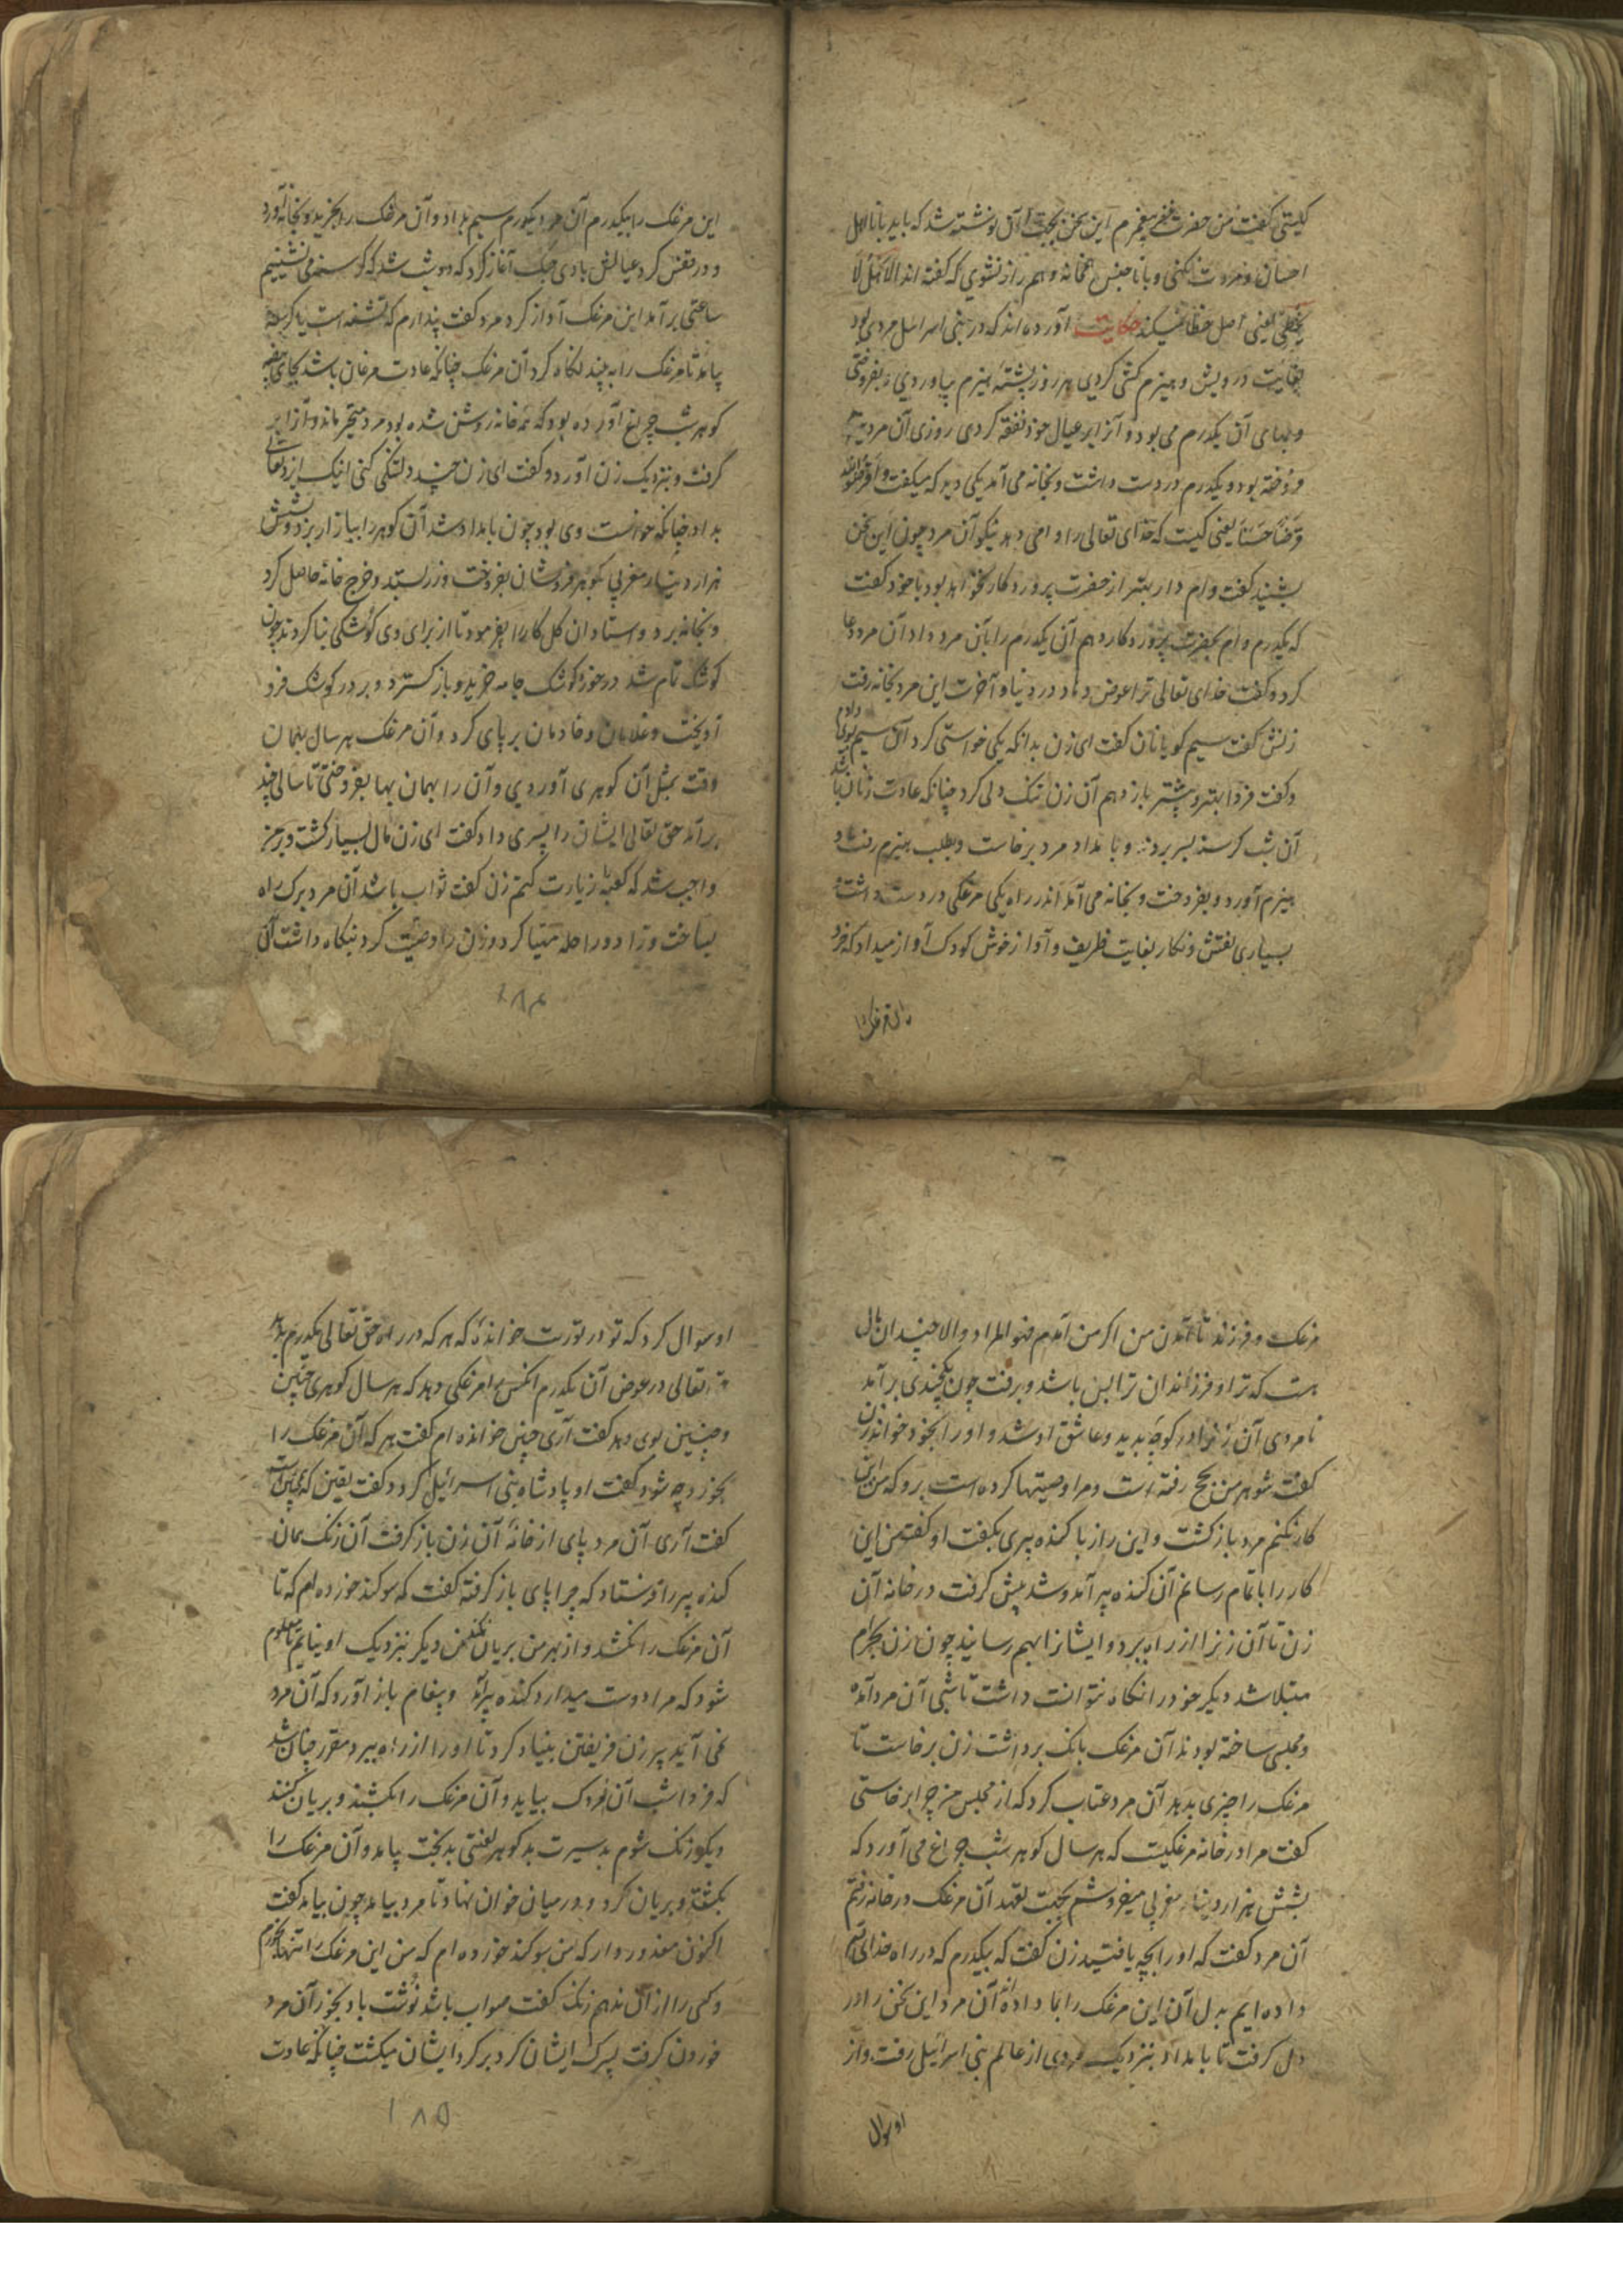 کیستی گفت من حضرت خضر پیغمبرم این سخن بجهت آن نوشته شد که باید با نااهل
احسان و مروت نکنی و با ناجنس همخانه و همراز نشوی که گفته اند الاصل لا
یخطی یعنی اصل خطا نمیکند حکایت آورده اند که در بنی اسرائیل مردی بود
بغایت درویش و هیزم کشی کردی هر روز پشته هیزم بیاوردی و بفروختی
و بهای آن یکدرم می بود و آنرا بر عیال خود نفقه کردی روزی آن مرد هیزم
فروخته بود و یکدرم در دست داشت و بخانه می آمد یکی دید که میگفت و اقرضوا الله
قرضا حسنا یعنی کیست که خدای تعالی را وامی دهد نیکو آن مرد چون این سخن
بشنید گفت وام دار بهتر از حضرت پروردکار نخواهد بود با خود گفت
که یکدرم وام بحضرت پروردکار دهم آن یکدرم را بآن مرد داد آن مرد دعا
کرد و گفت خدای تعالی ترا عوض دهاد در دنیا و آخرت این مرد بخانه رفت
زنش گفت سیم کو یا نان گفت ای زن بدانکه یکی خواستی کرد آن سیم بوی دادم
و گفت فردا بهتر و بیشتر باز دهم آن زن تنک دلی کرد چنانکه عادت زنان باشد
آن شب کرسنه بسر بردند و بامداد مرد برخاست و بطلب هیزم رفت و
هیزم آورد و بفروخت و بخانه می آمد اندر راه یکی مرغکی در دست داشت
بسیاری نقش و نکار بغایت ظریف و آواز خوش کودک آواز میداد که خرد
این مرغک را بیکدرم آن مرد یکدرم سیم بداد و آن مرغک را بخرید و بخانه آورد
و در قفس کرد عیالش با وی جنک آغاز کرد که دوش شد که کرسنه می نشینیم
ساعتی برآمد این مرغک آواز کرد مرد گفت پندارم که تشنه است یا کرسنه
بیامد تا مرغک را به بیند نکاه کرد آن مرغک چنانکه عادت مرغان باشد بجای بیضه
کوهر شب چراغ آورده بود که همه خانه روشن شده بود مرد متحیر ماند و آنرا بر
گرفت و بنزدیک زن آورد و گفت ای زن چند دلتنکی کنی اینک ایزد تعالی
بداد چنانکه خواست وی بود چون بامداد شد آن کوهر را ببازار برد و بشش
هزار دینار مغربی بکوهر فروشان بفروخت و زر بستد و خرج خانه حاصل کرد
و بخانه برد و استادان کل کار را بفرمود تا از برای وی کوشکی بنا کردند چون
کوشک تمام شد در خور کوشک جامه خرید و باز کسترد و بر در کوشک فرو
آویخت و غلامان و خادمان بر پای کرد و آن مرغک هر سال بهمان
وقت بمثل آن کوهری آوردی و آن را بهمان بها بفروختی تا سالی چند
برآمد حق تعالی ایشان را پسری داد گفت ای زن مال بسیار کشت و بر من
واجب شد که کعبه را زیارت کنم زن گفت ثواب باشد آن مرد برک راه
بساخت و زاد و راحله مهیا کرد و زن را وصیت کرد بنکاه داشت آن
۱۸۴
مرغک و فرزند تا آمدن من اکر من آمدم فهو المراد و الا چندان مال
هست که ترا و فرزندان ترا بس باشد و برفت چون یکچندی برآمد
نامردی آن زنرا در کوچه بدید و عاشق او شد و او را بخود خواند زن
گفت شوهر من بحج رفته است و مرا وصیتها کرده است برو که من این
کار نکنم مرد بازکشت و این راز با کنده پیری بگفت او گفت من این
کار را باتمام رسانم آن کنده پیر آمد و شد پیش کرفت در خانه آن
زن تا آن زنرا از راه ببرد و ایشانرا بهم رسانید چون زن بحرام
مبتلا شد دیگر خود را نکاه نتوانست داشت تا شبی آن مرد آمده
و مجلسی ساخته بودند آن مرغک بانک برداشت زن برخاست تا
مرغک را چیزی بدهد آن مرد عتاب کرد که از مجلس من چرا برخاستی
گفت مرا در خانه مرغکیست که هر سال کوهر شب چراغ می آورد که
بشش هزار دینار مغربی میفروشم بجهت تعهد آن مرغک در خانه رفتم
آن مرد گفت که او را بچه یافتید زن گفت که بیکدرم که در راه خدای تعالی
داده ایم بدل آن این مرغک را بما داده آن مرد این سخن را در
دل کرفت تا بامداد بنزدیک مردی از عالم بنی اسرائیل رفت و از
او سوال
او سوال کرد که تو در توریت خوانده که هر که در راه حق تعالی یکدرم بدهد
تعالی در عوض آن یکدرم انکس را مرغکی دهد که هر سال کوهری چنین
و چنین بوی دهد گفت آری چنین خوانده ام گفت هر که آن مرغک را
بخورد چه شود گفت او پادشاه بنی اسرائیل کردد گفت یقین که چنین است
گفت آری آن مرد پای از خانه آن زن باز کرفت آن زنک همان
کنده پیر را فرستاد که چرا پای باز کرفته گفت که سوکند خورده ام که تا
آن مرغک را نکشد و از بهر من بریان نکند من دیگر نزدیک او نیایم تا معلوم
شود که مرا دوست میدارد کنده پیر آمد و پیغام باز آورد که آن مرد
نمی آید پیر زن فریفتن بنیاد کرد تا او را از راه ببرد مقرر چنان شد
که فردا شب آن مردک بیاید و آن مرغک را بکشند و بریان کنند
دیگر روز زنک شوم بد سیرت بد کوهر لعنتی بدبخت بیامد و آن مرغک را
بکشت و بریان کرد و در میان خوان نهاد تا مرد بیامد چون بیامد گفت
اکنون معذور دار که من سوکند خورده ام که من این مرغک را تنها بخورم
و کسی را از آن ندهم زنک گفت صواب باشد نوشت باد بخور آن مرد
خوردن کرفت پسرک ایشان کرد بر کرد ایشان میکشت چنانکه عادت
۱۸۵